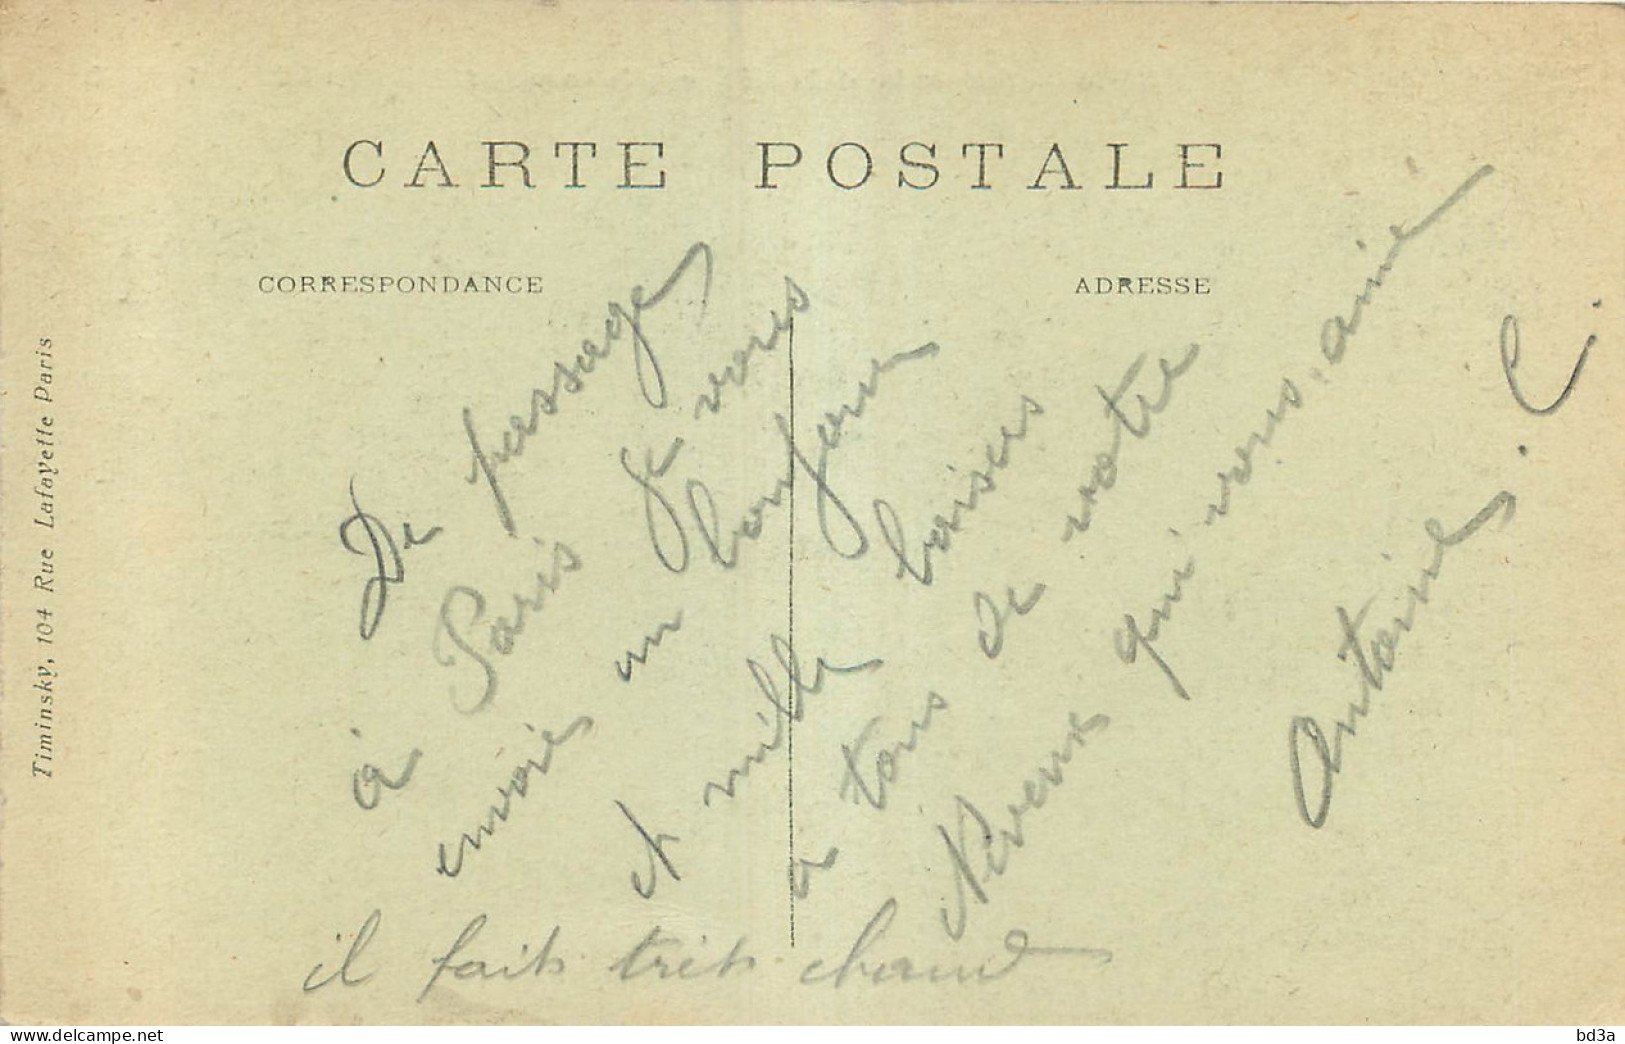 CARTE POSTALE
CORRESPONDANCE
ADRESSE
Timinsky, 104 Rue Lafayette Paris
De passage
à Paris je vous
envoies un bonjour
et mille baisers
a tous de votre
Neveux qui vous aime
Antoine. C.
il fait très chaud
www.delcampe.net
bd3a